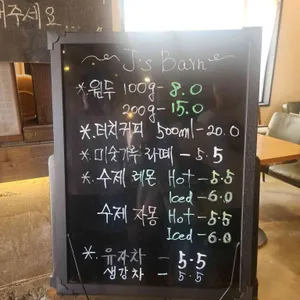 해주세요...
J's Barn
*. 원두 100g - 8.0
200g - 15.0
*. 더치커피 500ml - 20.0
*. 미숫가루 라떼 - 5.5
*. 수제 레몬 Hot - 5.5
Iced - 6.0
수제 자몽 Hot - 5.5
Iced - 6.0
*. 유자차 - 5.5
생강차 - 5.5